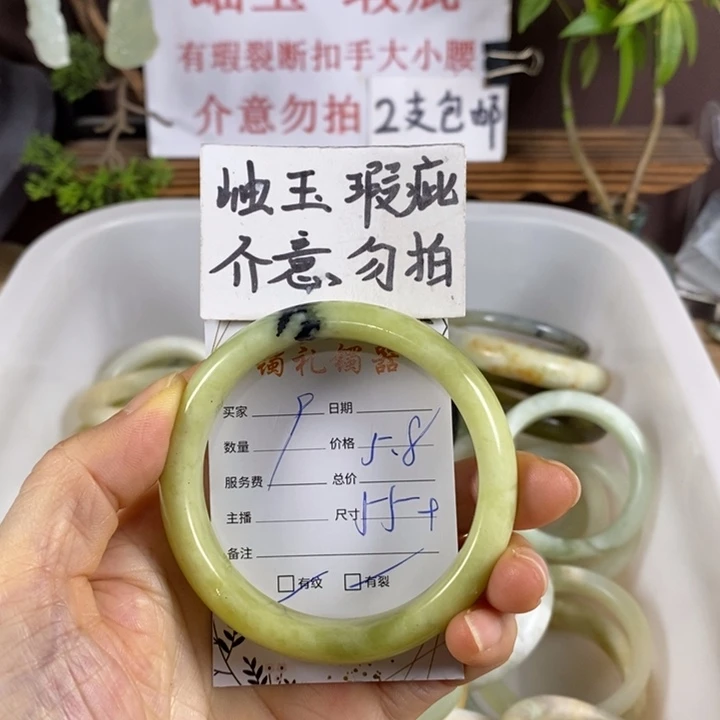 岫玉 瑕疵
有瑕裂断扣手大小腰
介意勿拍 2支包邮
岫玉 瑕疵
介意勿拍
镯礼镯器
买家 日期
数量 价格 5.8
服务费 总价
主播 尺寸 55+
备注
有纹 有裂